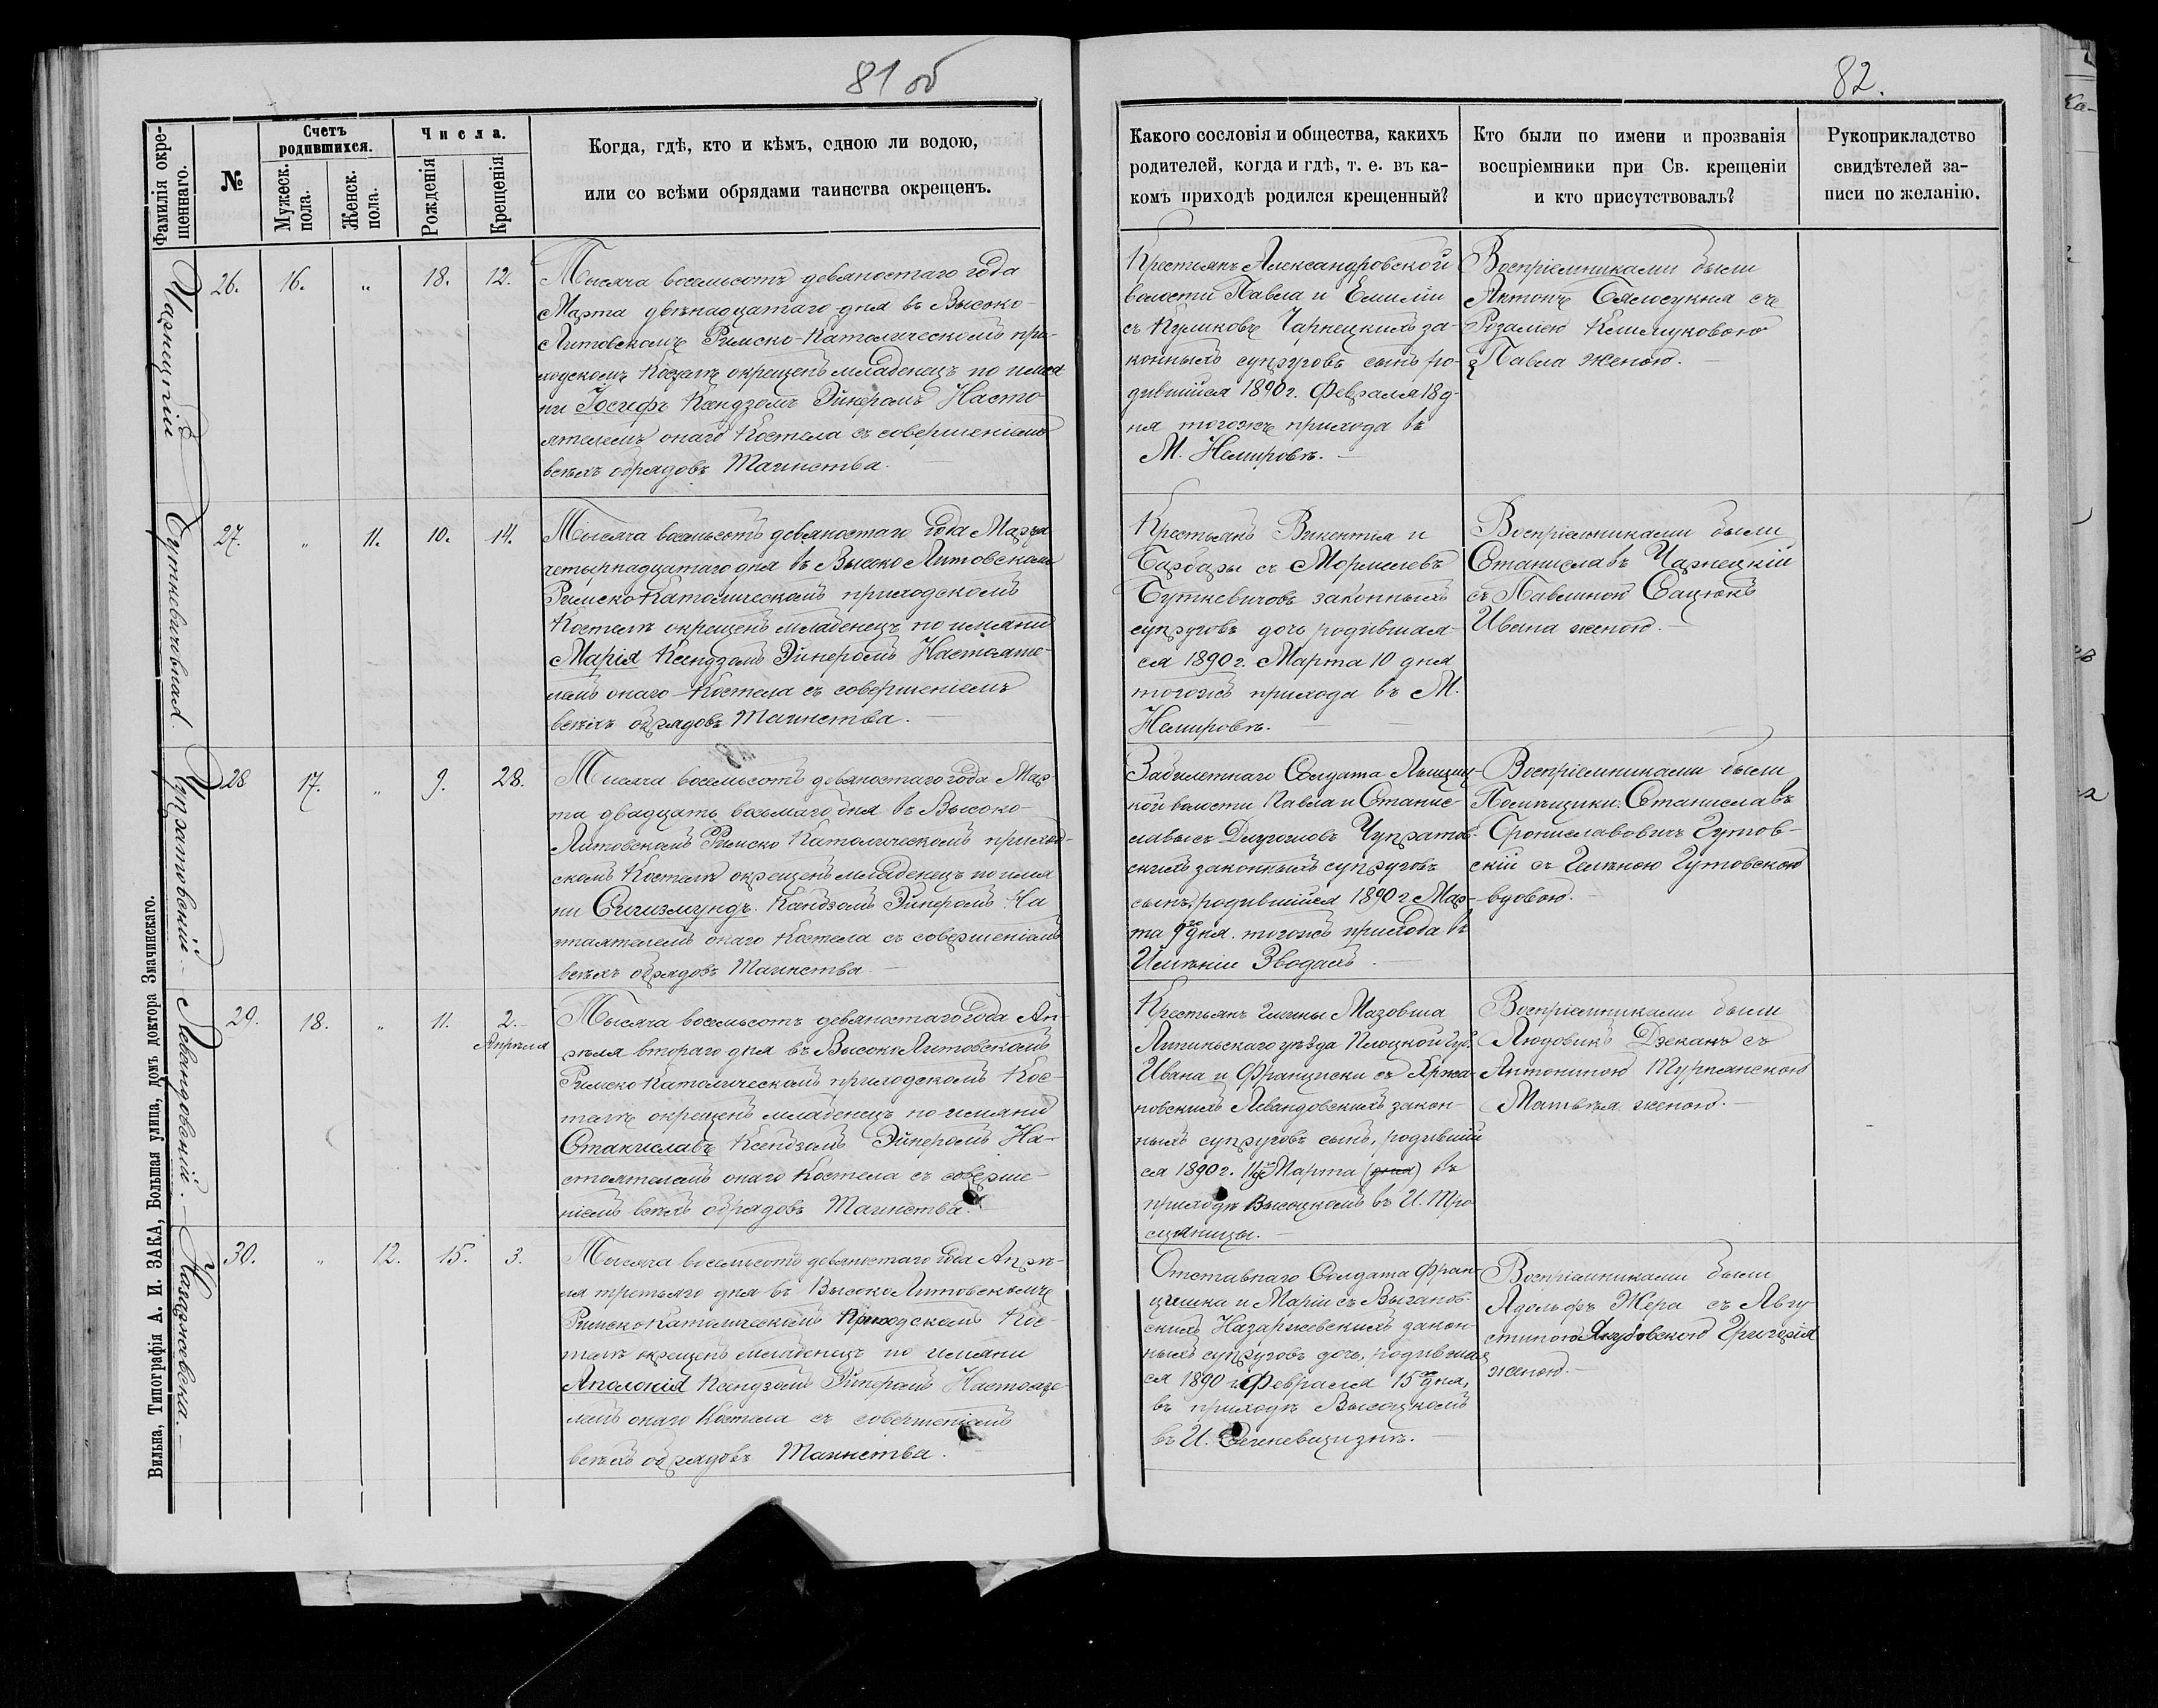 81 об
82.
Фамилія окре-
щеннаго.
№
Счетъ
родившихся.
Мужеск.
пола.
Женск.
пола.
Числа.
Рожденія
Крещенія
Когда, гдѣ, кто и кѣмъ, одною ли водою,
или со всѣми обрядами таинства окрещенъ.
Какого сословія и общества, какихъ
родителей, когда и гдѣ, т. е. въ ка-
комъ приходѣ родился крещенный?
Кто были по имени и прозванія
воспріемники при Св. крещеніи
и кто присутствовалъ?
Рукоприкладство
свидѣтелей за-
писи по желанію.
Чарнецкій
26. 16. „ 18. 12.
Тысяча восемьсотъ девяностаго года
Марта двѣнадцатаго дня въ Высоко-
Литовскомъ Римско-Католическомъ при-
ходскомъ Костелѣ окрещенъ младенецъ по имя
ни Іосифъ Ксендзомъ Эйнеромъ Насто-
ятелемъ онаго Костела съ совершеніемъ
всѣхъ обрядовъ Таинства.
Крестьянъ Александровской
волости Павла и Емиліи
съ Куликовъ Чарнецкихъ за-
конныхъ супруговъ сынъ ро-
дившійся 1890 г. Февраля 18 д-
ня тогожъ прихода въ
М. Немировѣ.
Воспріемниками были
Антонъ Бялосукня съ
Розаліею Климуковою
Павла женою.
Буткевичовная
27. „ 11. 10. 14.
Тысяча восемьсотъ девяностаго года Марта
четырнадцатаго дня въ Высоко Литовскомъ
Римско Католическомъ приходскомъ
Костелѣ окрещенъ младенецъ по имяни
Марія Ксендзомъ Эйнеромъ Настояте-
лемъ онаго Костела съ совершеніемъ
всѣхъ обрядовъ Таинства.
Крестьянъ Викентія и
Барбары съ Мормелевъ
Буткевичовъ законныхъ
супруговъ дочь родившая-
ся 1890 г. Марта 10 дня
тогожъ прихода въ М.
Немировѣ.
Воспріемниками были
Станиславъ Чарнецкій
съ Павлиною Сацюкъ
Ивана женою.
Чупратовскій
28 17. „ 9. 28.
Тысяча восемьсотъ девяностаго года Мар-
та двадцать восьмаго дня въ Высоко-
Литовскомъ Римско Католическомъ приход-
скомъ Костелѣ окрещенъ младенецъ по имя
ни Сигизмундъ Ксендзомъ Эйнеромъ На
стоятелемъ онаго Костела съ совершеніемъ
всѣхъ обрядовъ Таинства.
Забилетнаго Солдата
кой волости Павла и Станис-
лавы съ Чупратов-
скихъ законныхъ супруговъ
сынъ, родившійся 1890 г Мар-
та 9го дня. тогожъ прихода въ
Имѣніи Зводахъ.
Воспріемниками были
Помѣщики: Станиславъ
Брониславовичъ Гутов-
скій съ Геленою Гутовскою
вдовою.
Левандовскій.
29. 18. „ 11. 2.
Апрѣля
Тысяча восемьсотъ девяностаго года Ап-
рѣля втораго дня въ Высоко Литовскомъ
Римско Католическомъ приходскомъ Кос-
телѣ окрещенъ младенецъ по имяни
Станиславъ Ксендзомъ Эйнеромъ На-
стоятелемъ онаго Костела съ соверше-
ніемъ всѣхъ обрядовъ Таинства.
Крестьянъ Гмины Мазовша
Липиньскаго уѣзда Плоцкой Губ.
Ивана и Франциски съ Кржа-
новскихъ Левандовскихъ закон-
ныхъ супруговъ сынъ, родившій
ся 1890 г. 11го Марта (дня) въ
приходѣ Высоцкомъ въ И. Тро
сцяницы.
Воспріемниками были
Людовикъ Дзеканъ съ
Антониною Турнянскою
Матвѣя женою.
Назаржевска.
30. „ 12. 15. 3.
Тысяча восемьсотъ девяностаго года Апрѣ-
ля третьяго дня въ Высоко Литовскомъ
Римско Католическомъ Приходскомъ Кос-
телѣ окрещенъ младенецъ по имяни
Аполонія Ксендзомъ Эйнеромъ Настояте-
лемъ онаго Костела съ совершеніемъ
всѣхъ обрядовъ Таинства.
Отставнаго Солдата Фран-
цишка и Маріи съ Выганов-
скихъ Назаржевскихъ закон-
ныхъ супруговъ дочь, родившая
ся 1890 г. Февраля 15го дня,
въ приходѣ Высоцкомъ
въ И.
Воспріемниками были
Адольфъ Жера съ Авгу-
стиною Якубовскою Григорія
женою.
Вильна, Типографія А. И. ЗАКА, Большая улица, домъ доктора Змачинскаго.